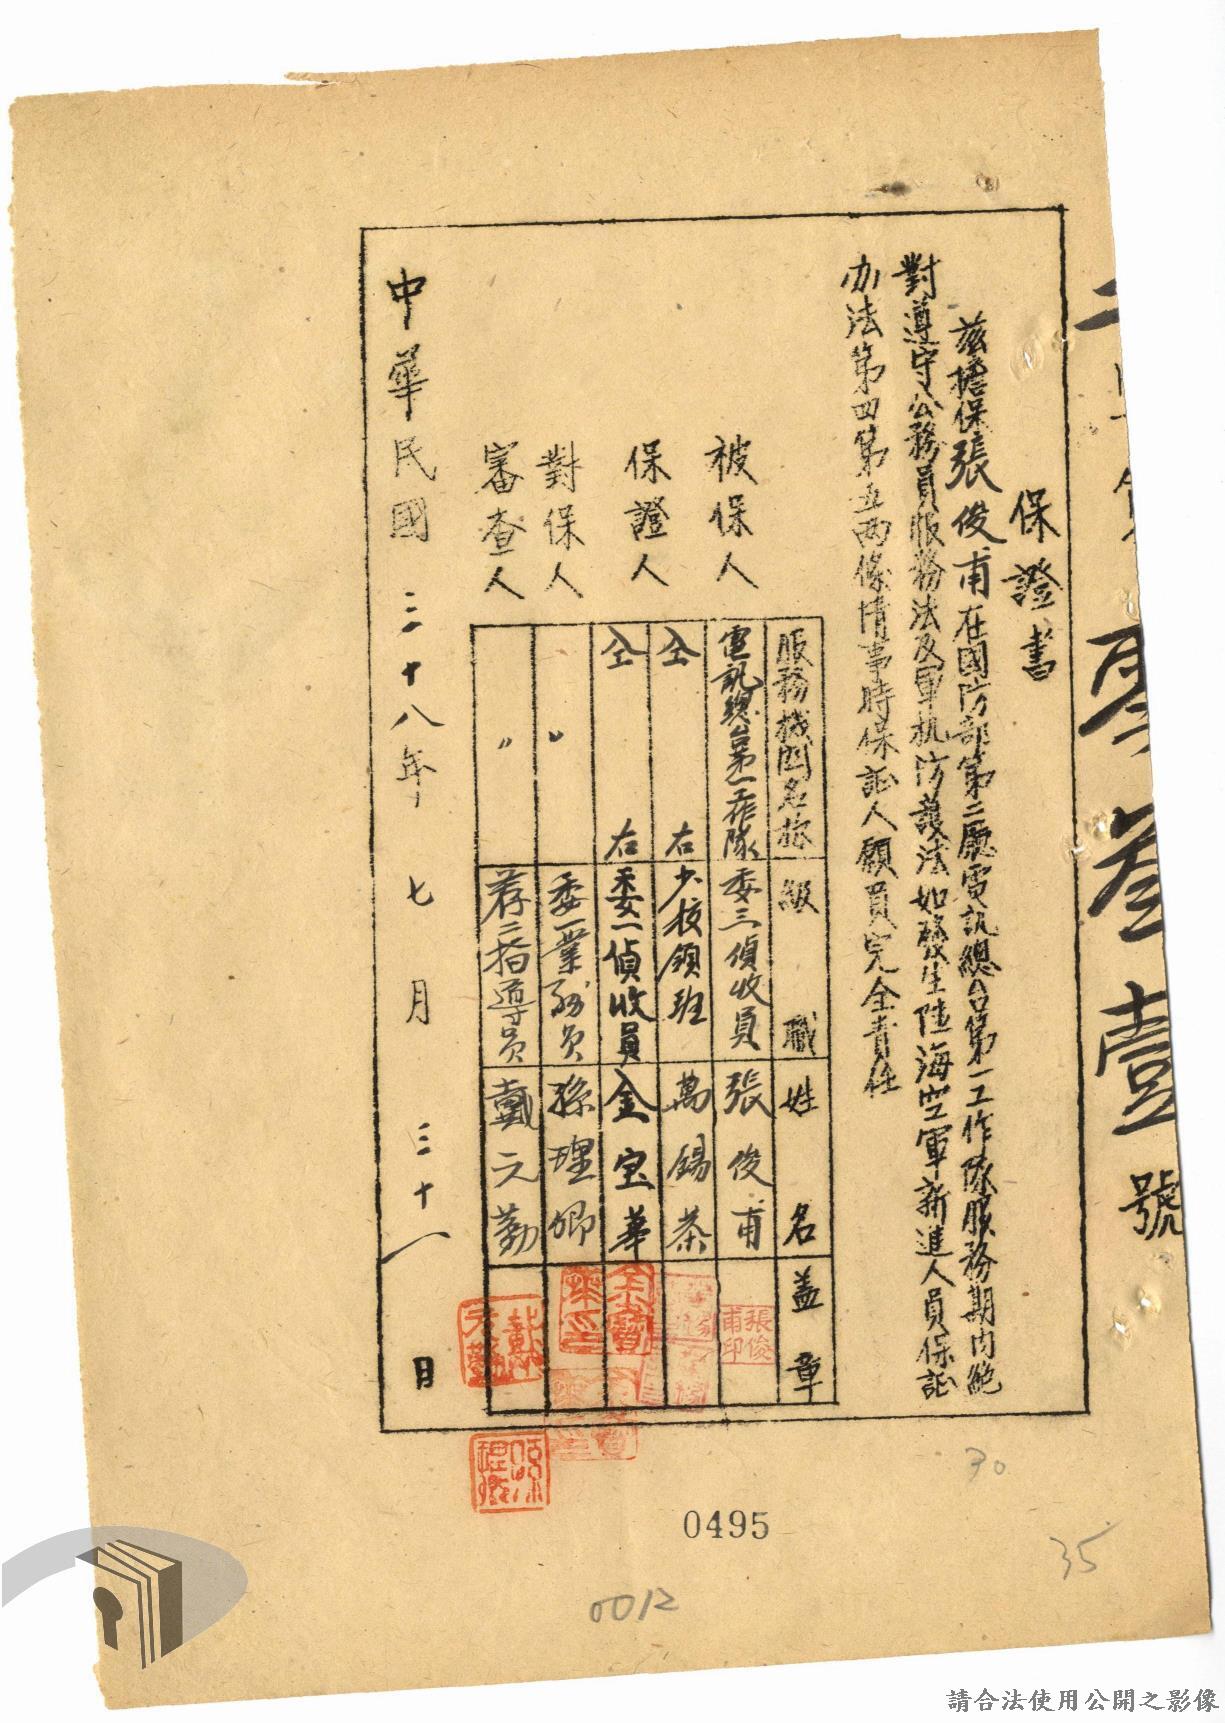 零叁壹號
保證書
茲擔保張俊甫在國防部第二廳電訊總台第一工作隊服務期內絕
對遵守公務員服務法及軍机防護法如發生陸海空軍新進人員保証
办法第四第五两條情事時保証人願負完全責任
服務機関名称 級職 姓名 盖章
被保人 電訊總台第一工作隊 委三偵收員 張俊甫 張俊甫印
保證人 仝右 少校領班 萬錫荼
仝右 委一偵收員 金宝華 金寶華印
對保人 〃 委一業務員 孫理卿 孫理卿
審查人 〃 荐二指導員 戴元勤 戴元勤
中華民國三十八年七月三十一日
30
0495
35
0012
請合法使用公開之影像